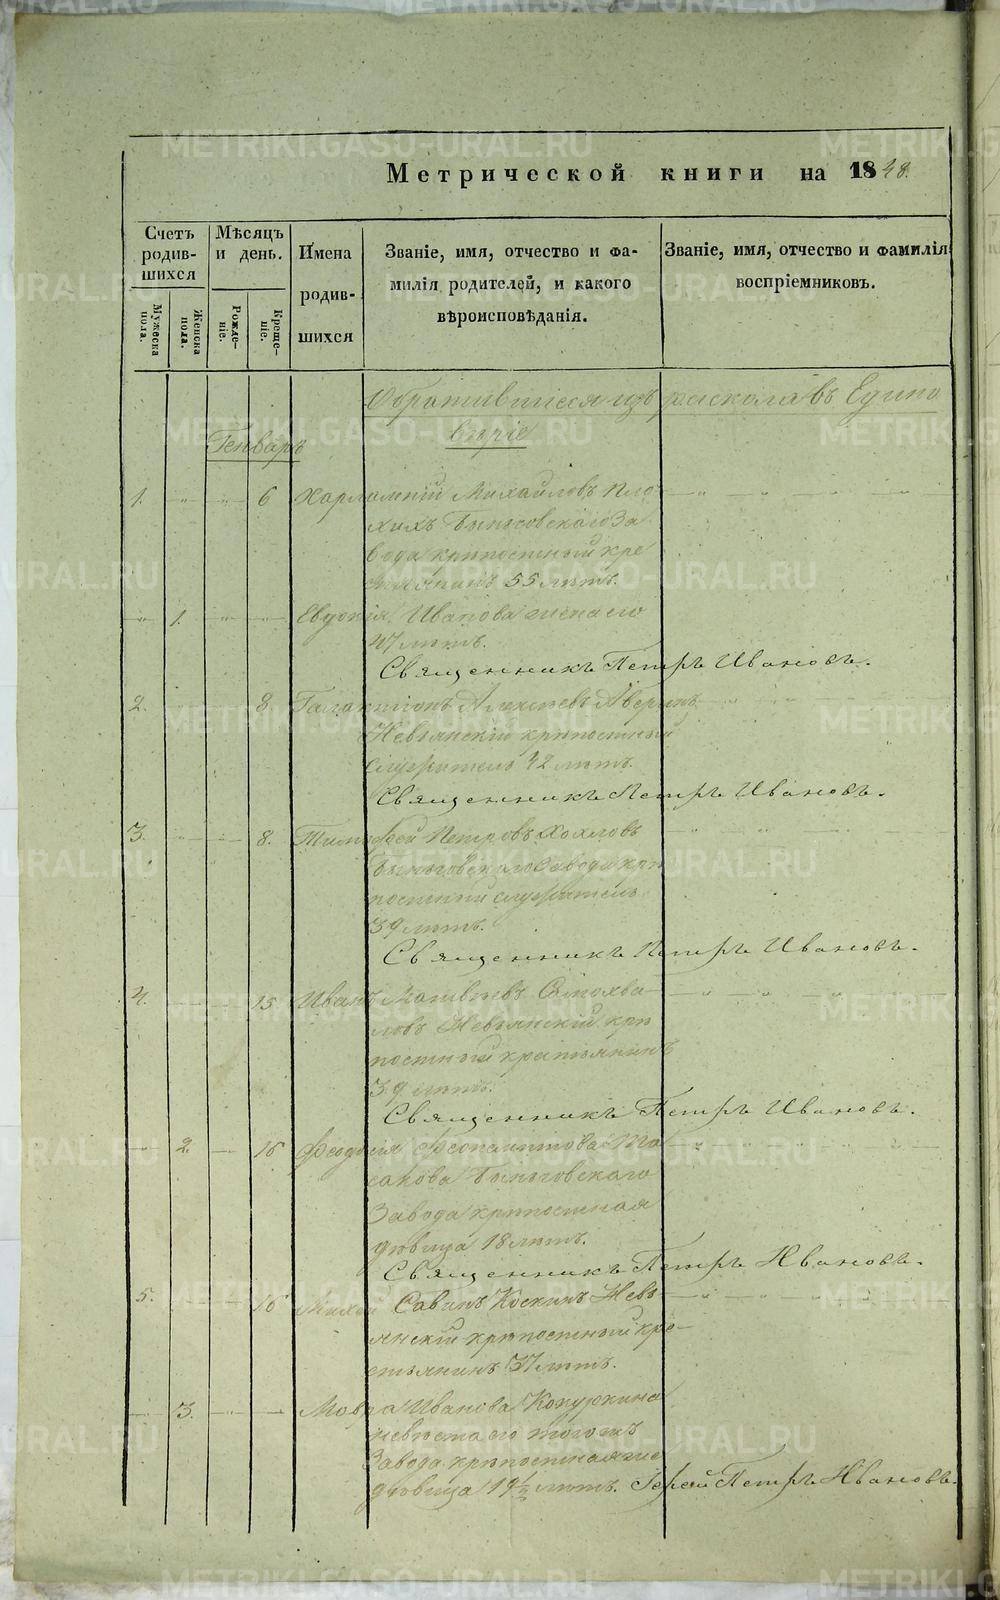 Метрической книги на 1848.
Счетъ родив-шихся
Мѣсяцъ и день.
Имена родив-шихся
Званіе, имя, отчество и фа-
милія родителей, и какого
вѣроисповѣданія.
Званіе, имя, отчество и фамилія
воспріемниковъ.
Мужеска пола.
Женска пола.
Рожде-ніе.
Креще-ніе.
Обратившіеся изъ раскола въ Едино
вѣріе
Генварь
1. 6 Харлампій Михайловъ Пло
хихъ Быньговскаго За
вода крѣпостный кре
стьянинъ 55 лѣтъ.
1. Евдокія Иванова жена его
47 лѣтъ.
Священникъ Петръ Ивановъ.
2. 8. Галактіонъ Алексѣевъ Аверинъ
Невьянскій крѣпостный
служитель 42 лѣтъ.
Священникъ Петръ Ивановъ.
3. 8. Тимофей Петровъ Хохловъ
Быньговскаго Завода крѣ
постный служитель
39 лѣтъ.
Священникъ Петръ Ивановъ.
4. 15 Иванъ Матвѣевъ Самохва-
ловъ Невьянскій крѣ
постный крестьянинъ
39 лѣтъ.
Священникъ Петръ Ивановъ.
2. 16 Феодосія
Быньговскаго
Завода крѣпостная
дѣвица 18 лѣтъ.
Священникъ Петръ Ивановъ.
5. 16 Савинъ Коскинъ Невь-
янскій крѣпостный кре-
стьянинъ 37 лѣтъ.
3. Мавра Иванова
невѣста его тогожъ
Завода крѣпостная же
дѣвица 19½ лѣтъ. Іерей Петръ Ивановъ.
METRIKI.GASO-URAL.RU